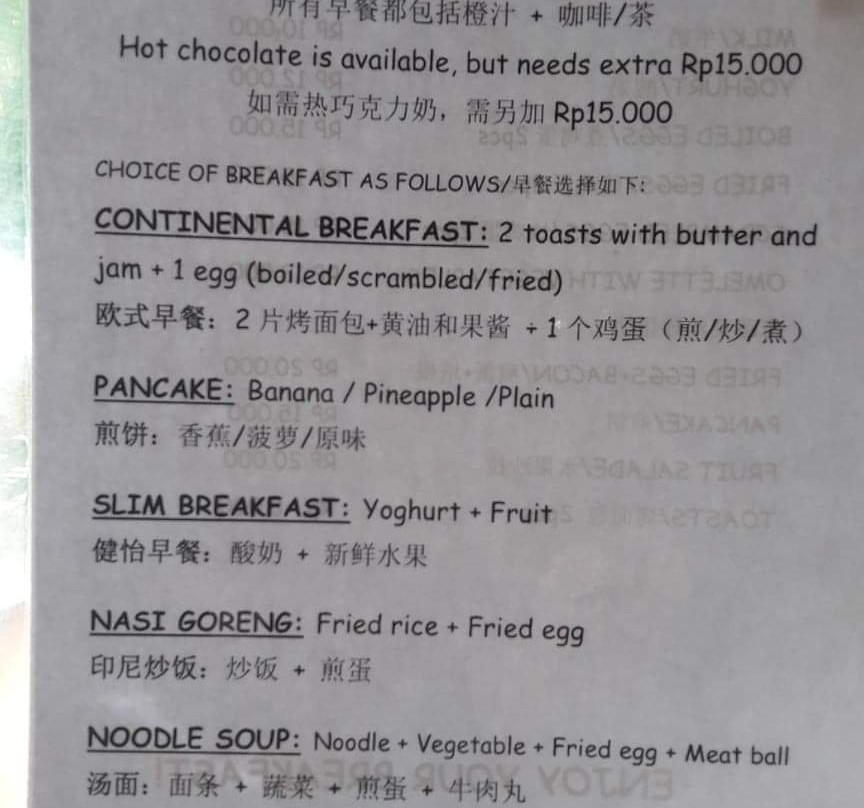 所有早餐都包括橙汁 + 咖啡/茶
Hot chocolate is available, but needs extra Rp15.000
如需热巧克力奶，需另加 Rp15.000
CHOICE OF BREAKFAST AS FOLLOWS/早餐选择如下:
CONTINENTAL BREAKFAST: 2 toasts with butter and
jam + 1 egg (boiled/scrambled/fried)
欧式早餐：2 片烤面包+黄油和果酱 + 1 个鸡蛋（煎/炒/煮）
PANCAKE: Banana / Pineapple /Plain
煎饼：香蕉/菠萝/原味
SLIM BREAKFAST: Yoghurt + Fruit
健怡早餐：酸奶 + 新鲜水果
NASI GORENG: Fried rice + Fried egg
印尼炒饭：炒饭 + 煎蛋
NOODLE SOUP: Noodle + Vegetable + Fried egg + Meat ball
汤面：面条 + 蔬菜 + 煎蛋 + 牛肉丸